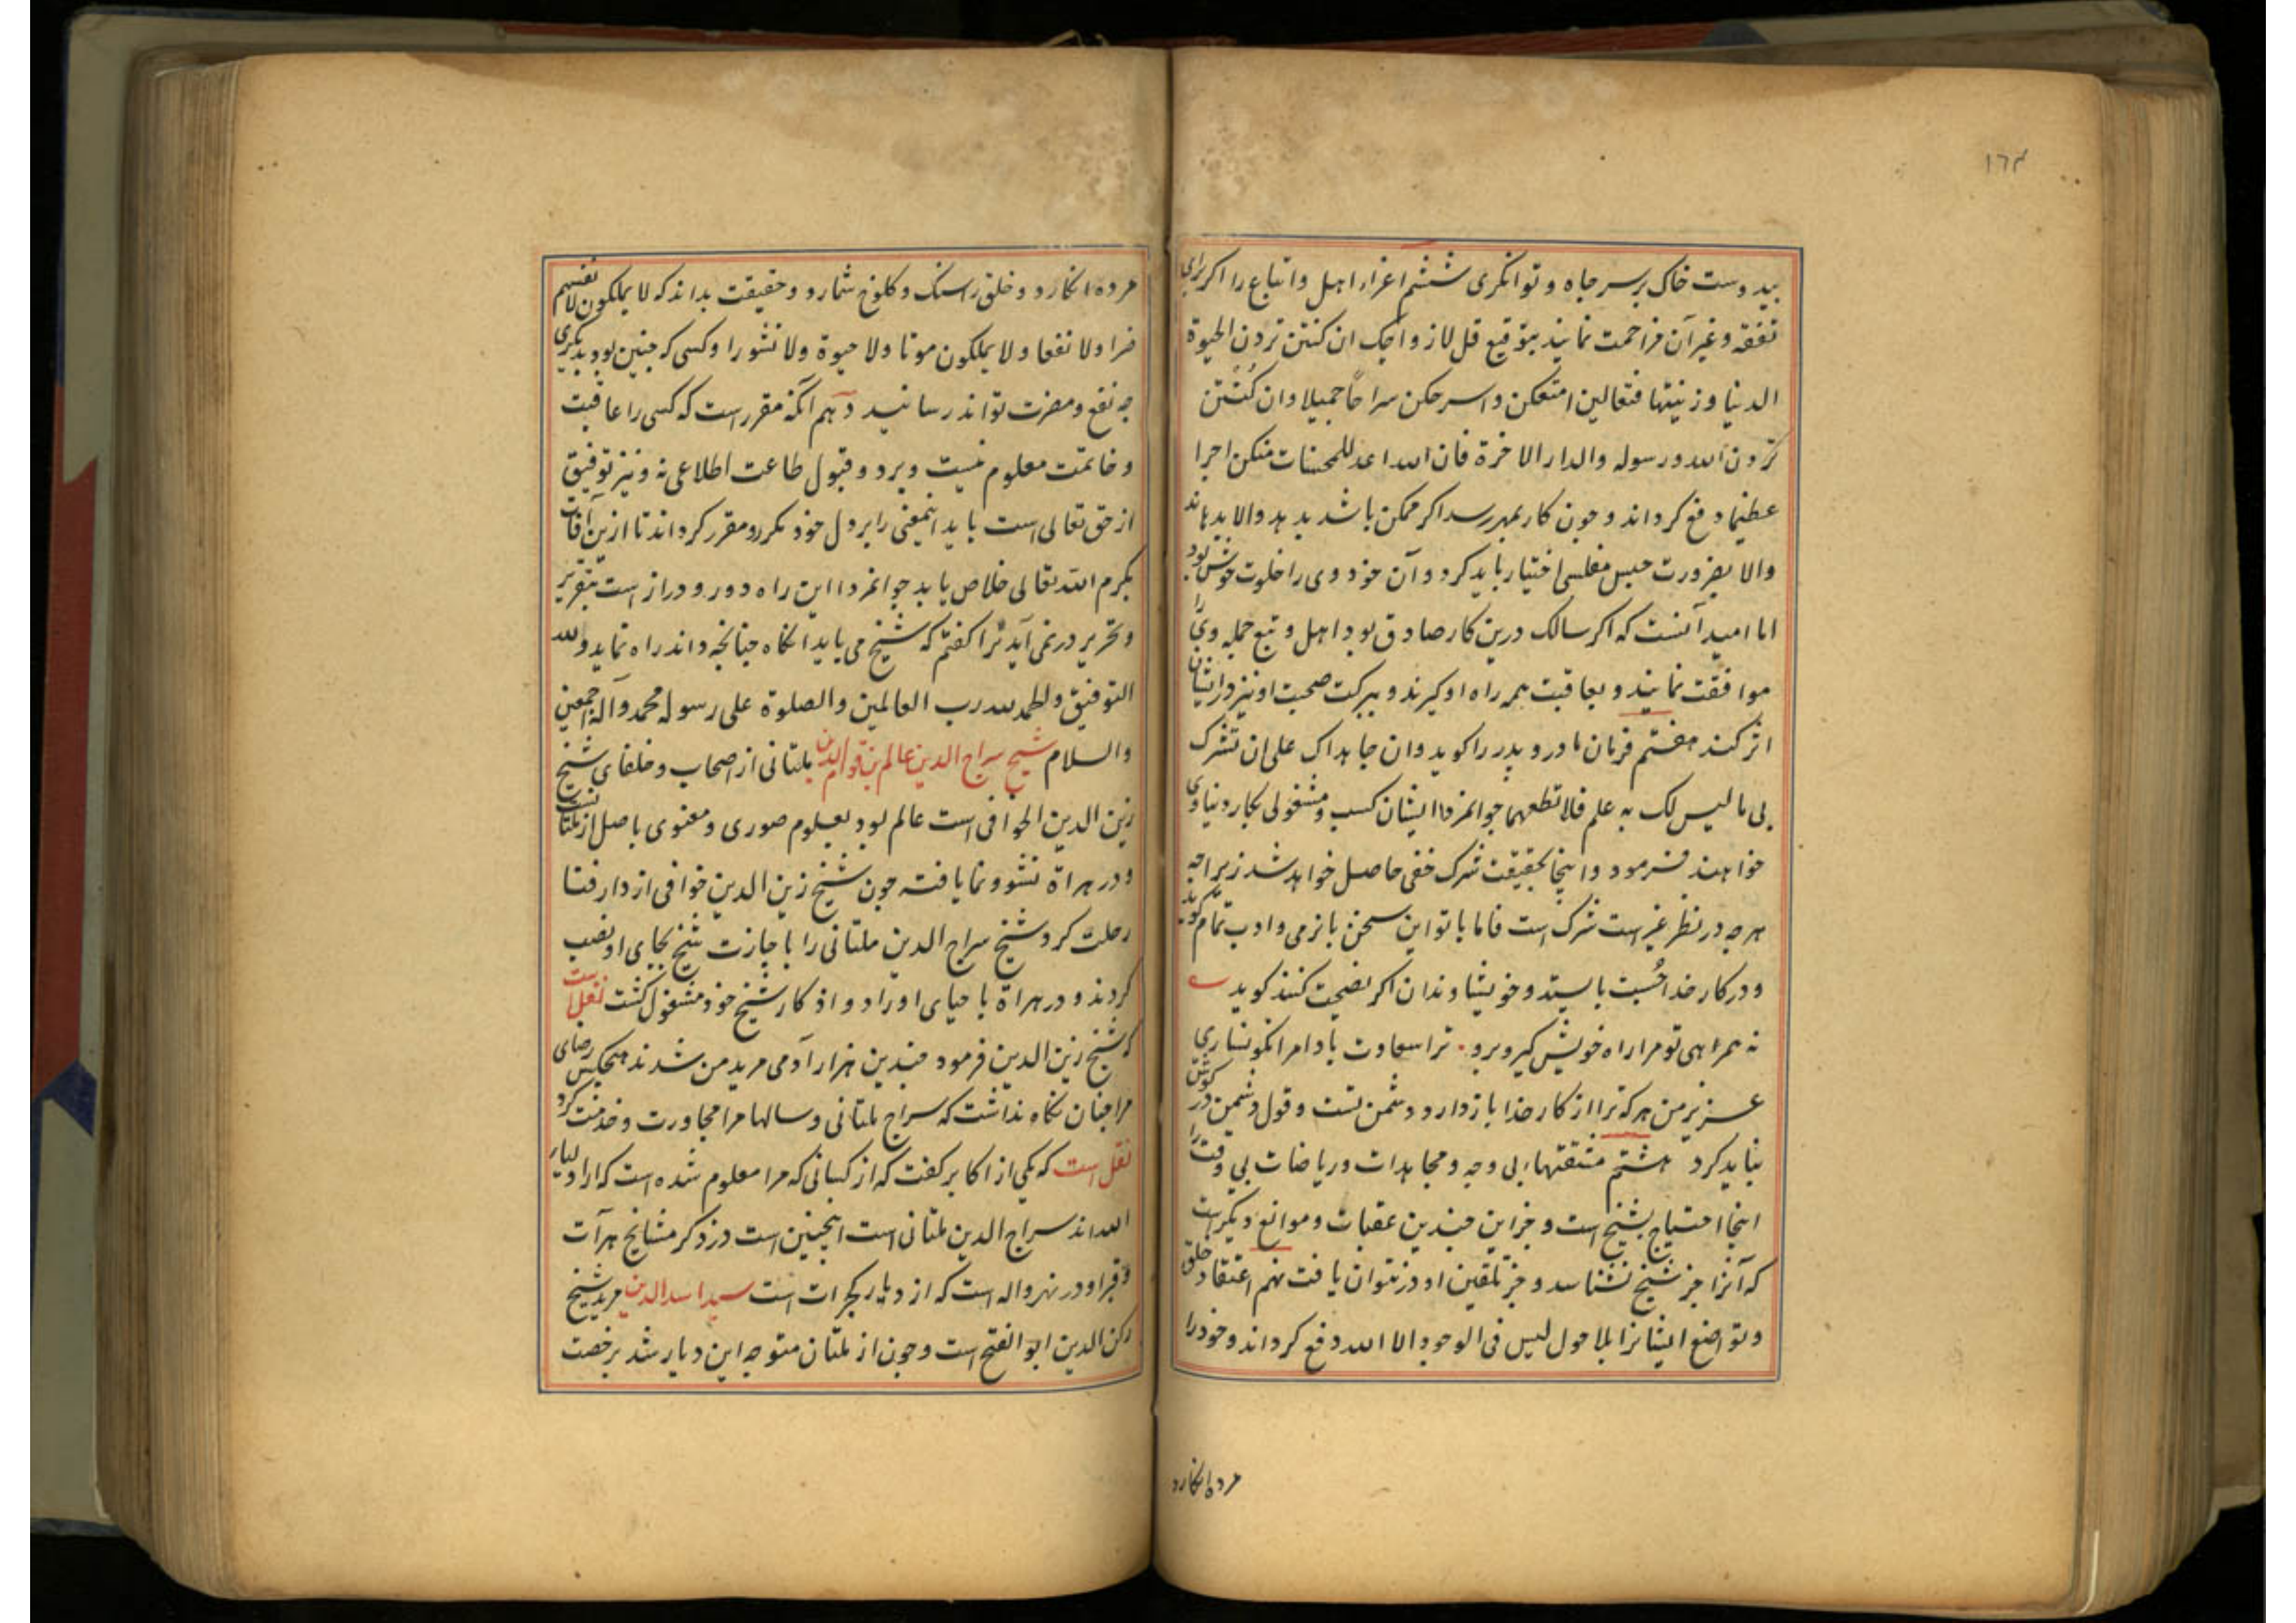 ١٦٣
بیدوست خاک برسر جاه و توانکری ششم اغرار اهل و اتباع را اکر برای
نفقه و غیر آن مزاحمت نمایند بتوقیع قل لازواجک ان کنتن تردن الحیوة
الدنیا و زینتها فتعالین امتعکن و اسرحکن سراحًا جمیلا و ان کُنتُن
تردن الله و رسوله والدار الاخرة فان الله اعد للمحسنات منکن اجرا
عظیما دفع کرداند و چون کار بمهر رسد اکر ممکن باشد بدهد والا بدهاند
والا بضرورت حبس مفلسی اختیار باید کرد و آن خود وی را خلوت خوش بود
اما امید آنست که اکر سالک درین کار صادق بود اهل و تبع جمله ویرا
موافقت نمایند و بعاقبت همه راه او کیرند و ببرکت صحبت او نیز در ایشان
اثر کند هفتم فرمان مادر و پدر را کوید وان جاهداک علی ان تشرک
بی ما لیس لک به علم فلا تطعهما جوانمردا ایشان کسب و مشغولی بکار دنیاوی
خواهند فرمود و اینجا بحقیقت شرک خفی حاصل خواهد شد زیراچه
هرچه در نظر غیر است شرک است فاما با تو این سخن با نرمی و ادب تمام کوید
و در کار خدا چُست بایستد و خویشاوندان اکر نصیحت کنند کوید
نه همراهی تو مرا راه خویش کیر و برو. ترا سعادت بادا مرا نکونساری
عزیز من هر که ترا از کار خدا باز دارد دشمن تست و قول دشمن در کوش
نباید کرد هشتم مشقتهاء بی وجه و مجاهدات و ریاضات بی وقت را
اینجا احتیاج بشیخ است و جز این چندین عقبات و موانع دیکر است
که آنرا جز شیخ نشناسد و جز تلقین او در نتوان یافت نهم اعتقاد خلق
و تواضع ایشانرا بلا حول لیس فی الوجود الا الله دفع کرداند و خود را
مرده انکارد
مرده انکارد و خلق را سنک و کلوخ شمارد و حقیقت بداند که لا یملکون لانفسهم
ضرا ولا نفعا ولا یملکون موتا ولا حیوة ولا نشورا و کسی که چنین بود بدیکری
چه نفع و مضرت تواند رسانید دهم آنکه مقرر است که کسی را عاقبت
و خاتمت معلوم نیست و برد و قبول طاعت اطلاعی نه و نیز توفیق
از حق تعالی است باید اینمعنی را بر دل خود مکرر و مقرر کرداند تا ازین آفات
بکرم الله تعالی خلاص یابد جوانمردا این راه دور و دراز است بتقریر
و تحریر در نمی آید ترا کفتم که شیخ می باید انکاه چنانچه داند راه نماید والله
التوفیق والحمد لله رب العالمین والصلوة علی رسوله محمد وآله اجمعین
والسلام شیخ سراج الدین عالم بن قوام الدین ملتانی از اصحاب و خلفای شیخ
زین الدین الخوافی است عالم بود بعلوم صوری و معنوی باصل از ملتان است
و در هراة نشو و نما یافته چون شیخ زین الدین خوافی از دار فنا
رحلت کرد شیخ سراج الدین ملتانی را باجازت شیخ بجای او نصب
کردند و در هراة باحیای اوراد و اذکار شیخ خود مشغول کشت نقل است
که شیخ زین الدین فرمود چندین هزار آدمی مرید من شدند هیچکس رضای
مرا چنان نکاه نداشت که سراج ملتانی و سالها مرا مجاورت و خدمت کرد
نقل است که یکی از اکابر کفت که از کسانی که مرا معلوم شده است که از اولیاء
الله اند سراج الدین ملتانی است اینچنین است در ذکر مشایخ هرآت
و قبر او در نهرواله است که از دیار کجرات است سید اسد الدین مرید شیخ
رکن الدین ابو الفتح است و چون از ملتان متوجه این دیار شد برخصت